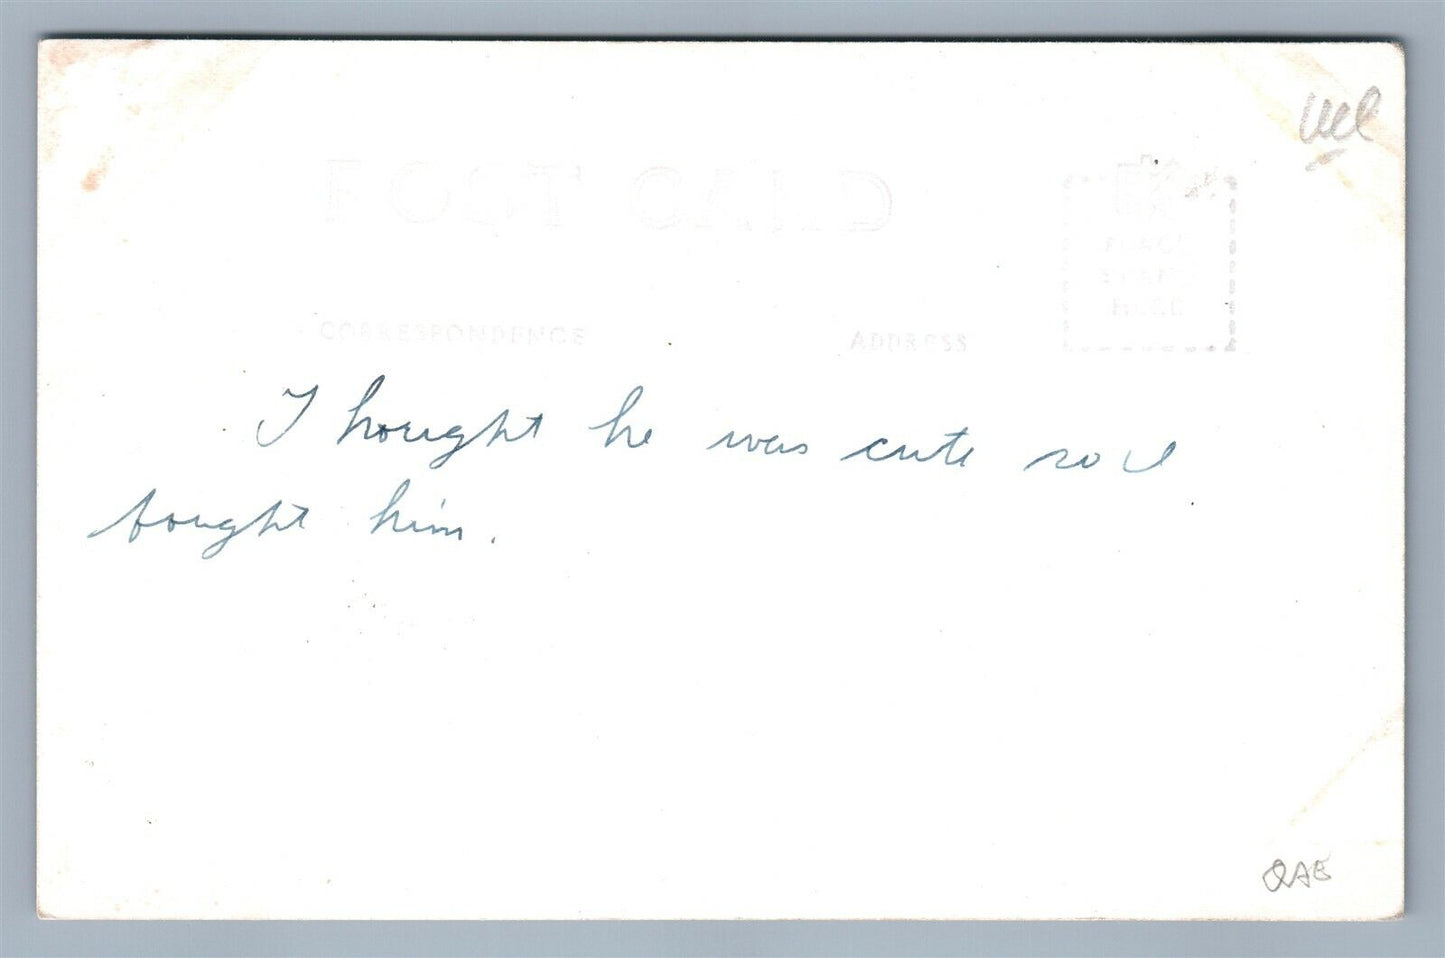 POST CARD
EK
PLACE
STAMP
HERE
CORRESPONDENCE
ADDRESS
I hought he was cute so I
bought him.
QAE